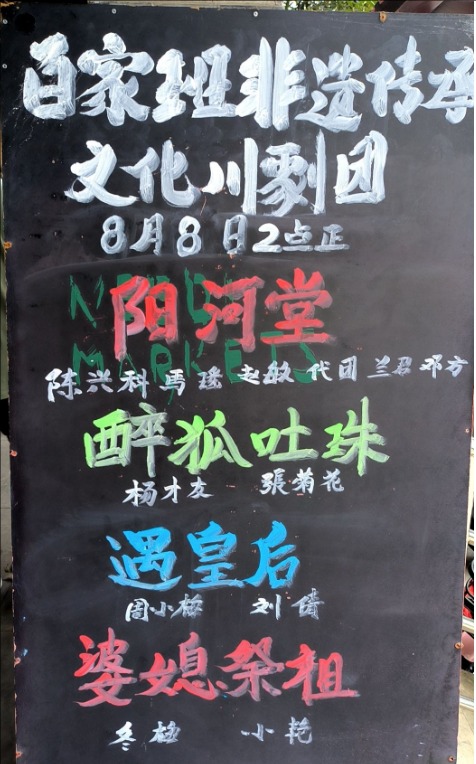 百家班非遗传承
文化川剧团
8月8日2点正
阳河堂
陈兴科 馬瑶 赵敏 代团 兰君 邓方
醉狐吐珠
杨才友 張菊花
遇皇后
周小梅 刘倩
婆媳祭祖
冬梅 小艳